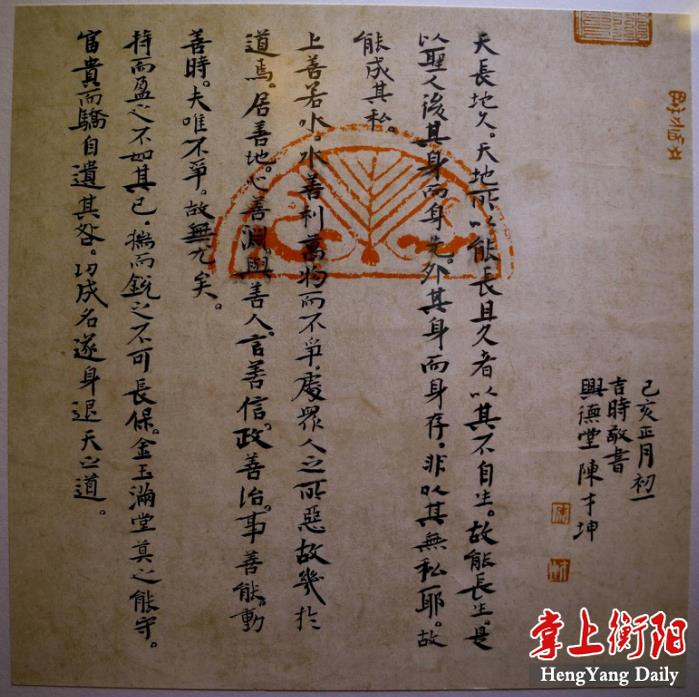 己亥正月初一
吉時敬書
興德堂陳才坤
天長地久。天地所以能長且久者以其不自生。故能長生。是
以聖人後其身而身先。外其身而身存。非以其無私耶。故
能成其私。
上善若水。水善利萬物而不爭。處眾人之所惡故幾於
道焉。居善地。心善淵。與善人。言善信。政善治。事善能。動
善時。夫唯不爭。故無尤矣。
持而盈之不如其已。揣而銳之不可長保。金玉滿堂莫之能守。
富貴而驕自遺其咎。功成名遂身退天之道。
掌上衡阳
HengYang Daily